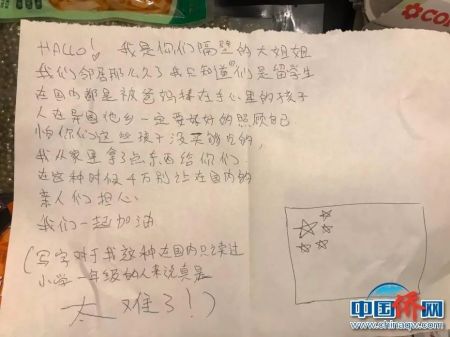 HALLO! 我是你们隔壁的大姐姐
我们邻居那么久了我只知道你们是留学生
在国内都是被爸妈捧在手心里的孩子
人在异国他乡一定要好好的照顾自己
怕你们这些孩子没买够吃的,
我从家里拿了点东西给你们
在这种时候千万别让在国内的
亲人们担心
我们一起加油
(写字对于我这种在国内只读过
小学一年级的人来说真是
太难了!)
中国侨网
www.chinaqw.com